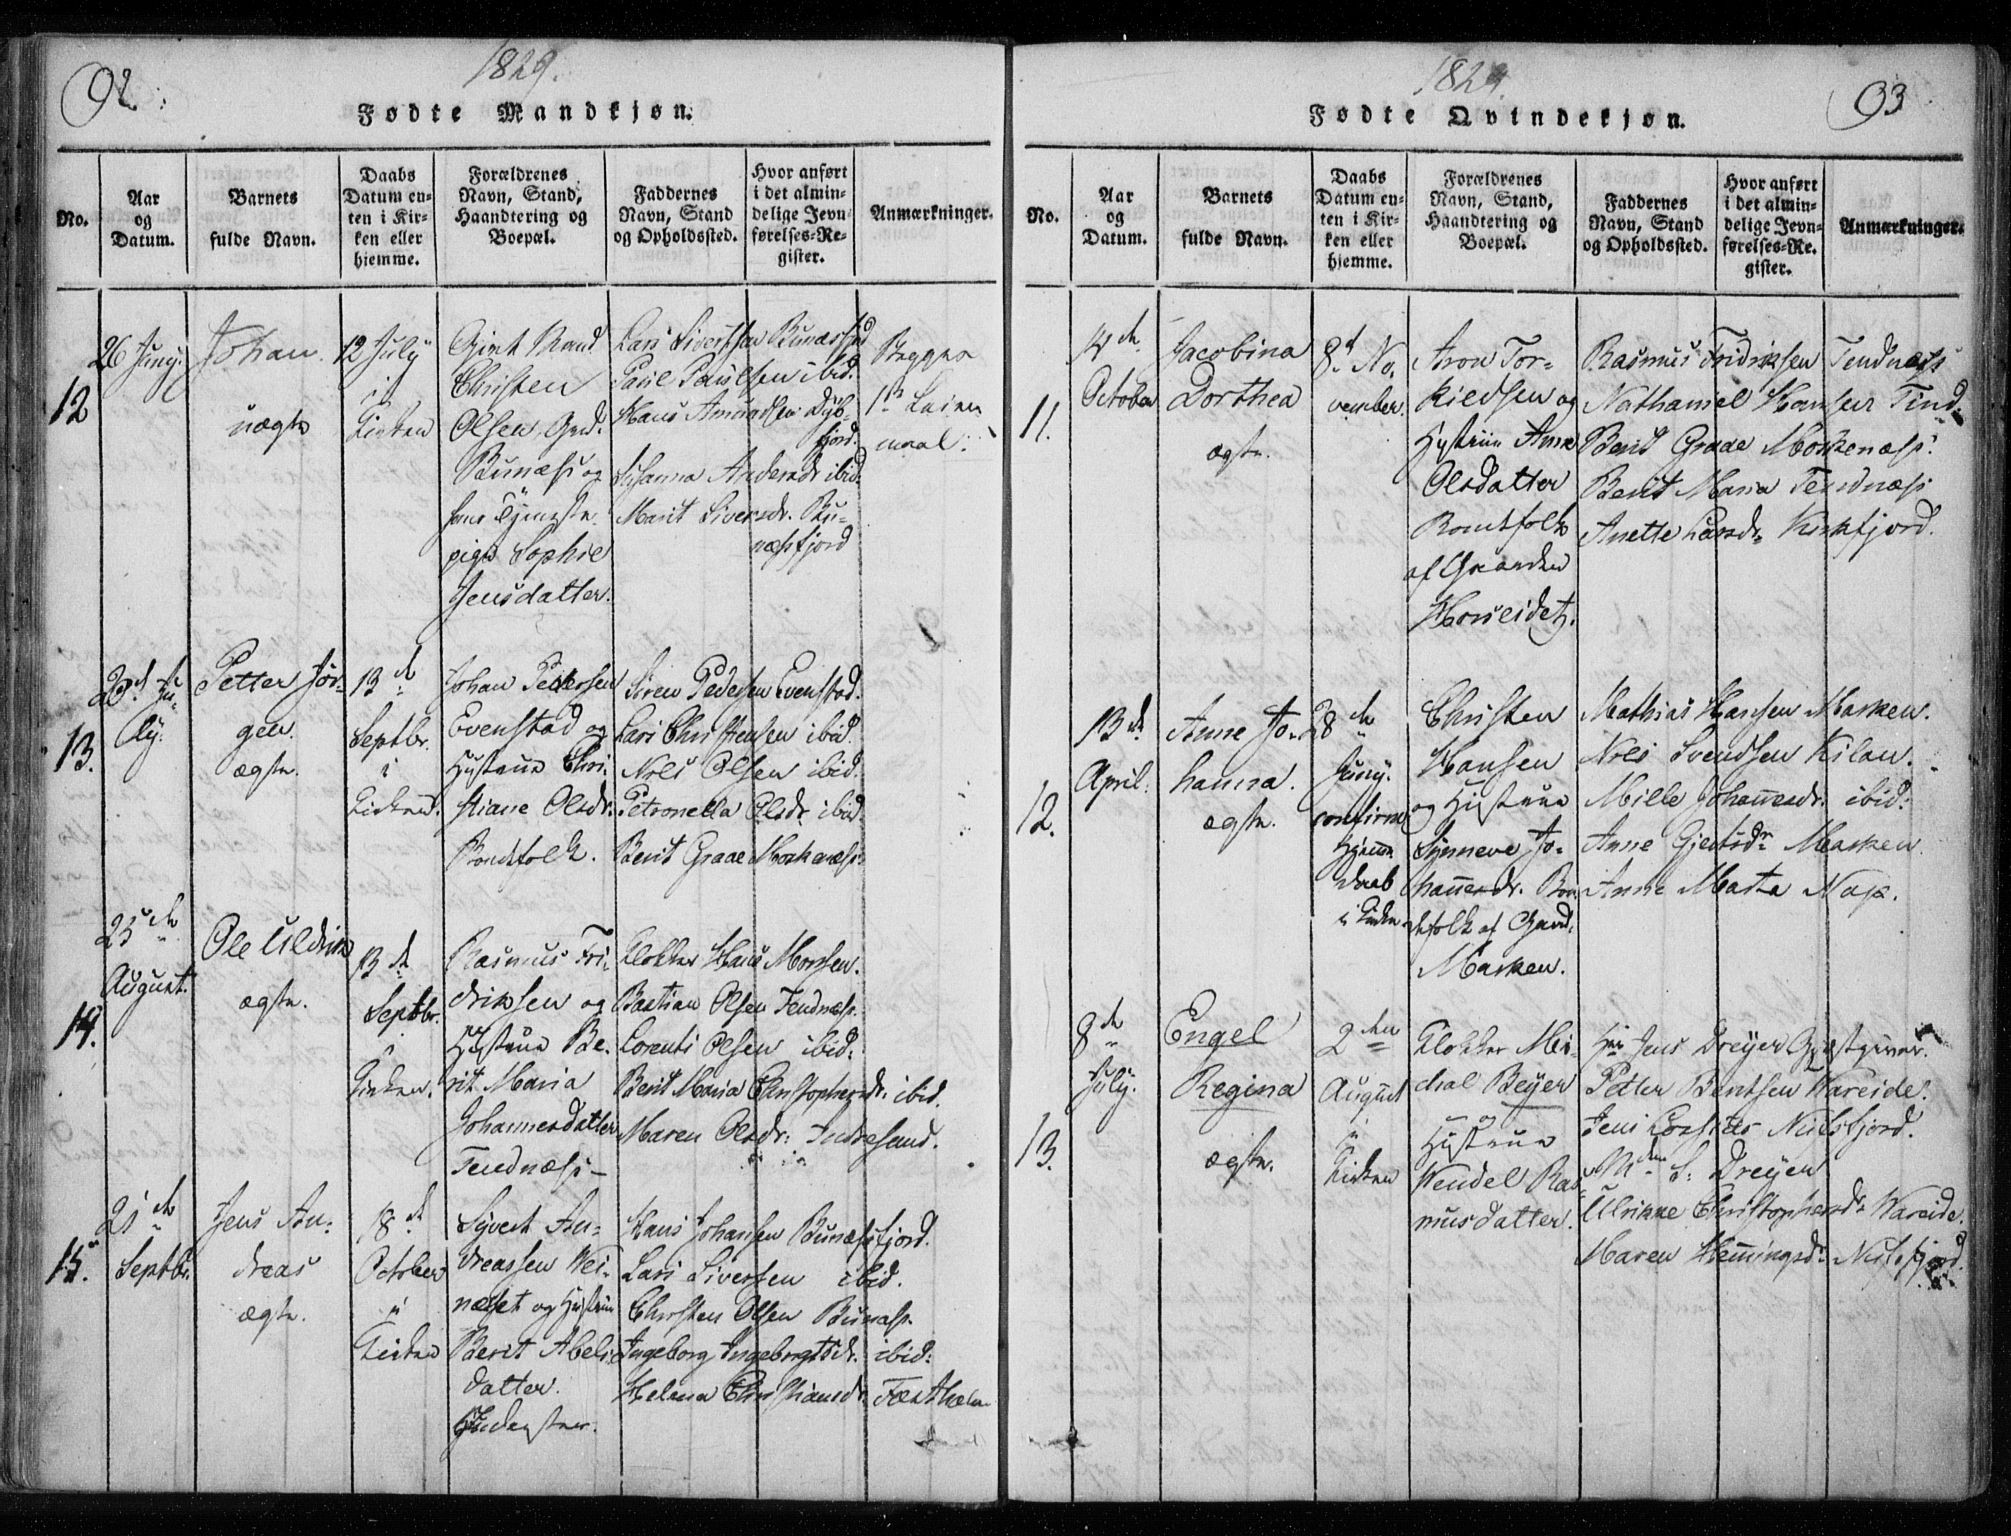 92.
1829.
Fødte Mandkjøn.
No.
Aar
og
Datum.
Barnets
fulde Navn.
Daabs
Datum en-
ten i Kir-
ken eller
hjemme.
Forældrenes
Navn, Stand,
Haandtering og
Boepæl.
Faddernes
Navn, Stand
og Opholdssted.
Hvor anført
i det almin-
delige Jevn-
førelses-Re-
gister.
Anmærkninger.
12
26 Juny.
Johan.
uægte
12 July
i
Kirken
Givt Mand
Christen
Olsen Grd.
Bunæss og
hans Tjeneste
pige Sophie
Jensdatter.
Lars Sivertsen Bunæssfjord
Paul Paulsen ibid.
Hans Amundsen Dyb-
fjord.
Susanna Andersdr ibid.
Marit Siversdr. Bu-
næssfjord
Begges
1ste Leier-
maal.
13.
20d Ju-
ly.
Petter Jør-
gen.
ægte.
13d
Septbr.
i
Kirken.
Johan Pedersen
Evenstad og
Hustrue Chri-
stiane Olsdr.
Bondefolk.
Søren Pedersen Evenstad.
Lars Christensen ibid.
Nels Olsen ibid.
Petronella Olsdr. ibid.
Berit Graae Moskenæss.
14.
25de
August.
Ole Uldrik
ægte.
13d
Septbr.
i
Kirken.
Rasmus Fri-
driksen og
Hustrue Be-
rit Maria
Johannesdatter
Tendnæss
Klokker Hans Monsen.
Bastian Olsen Tendnæss.
Lorents Olsen ibid.
Berit Maria Christophersdr. ibid.
Maren Olsdr. Indresand.
15.
21de
Septbr.
Jens An-
dreas
ægte.
18d
October
i
Kirken
Sivert An-
dreassen Rei-
næset og Hustrue
Berit Abels
datter.
Hans Johansen Bunæssfjord.
Lars Siversen ibid.
Christen Olsen Bunæss.
Ingeborg Ingebrigtsdr. ibid.
Helena Christiansdr.
93
1829.
Fødte Qvindekjøn.
No.
Aar
og
Datum.
Barnets
fulde Navn.
Daabs
Datum en-
ten i Kir-
ken eller
hjemme.
Forældrenes
Navn, Stand,
Haandtering og
Boepæl.
Faddernes
Navn, Stand
og Opholdssted.
Hvor anført
i det almin-
delige Jevn-
førelses-Re-
gister.
Anmærkninger.
11.
14de
October
Jacobina
Dorthea
ægte.
8d No-
vember.
Aron Tor-
kildsen og
Hustrue Anne
Olsdatter
Bondefolk
af Gaarden
Horseidet.
Rasmus Fridriksen Tendnæss
Nathanael Hansen Tind.
Berit Graae Moskenæss.
Berit Maria Tendnæss
Anette Larsdr. Kirkfjord.
12.
13de
April.
Anne Jo-
hanna.
ægte.
28de
Juny.
confirm.
Hjemme
daab
i Kirken
Christen
Hansen
og Hustrue
Synneve Jo-
hannesdr. Bon-
defolk af Gaard.
Marken.
Mathias Hansen Marken.
Nels Svendsen Kilan.
Mille Johannesdr. ibid.
Anne Gjertsdr Marken
Anne Marta Nap.
13.
8de
July.
Engel
Regina
ægte.
2den
August
i
Kirken
Klokker Mi-
chal Beyer
og
Hustrue
Wendel Ras-
musdatter.
Hr. Jens Dreyer Gjæstgiver.
Petter Bentsen Wareide.
Jens Lorents Nulsfjord.
Mdm S. Dreyer
Ulrikke Christophersdr Wareide.
Maren Hemmingsdr. Nulsfjord.